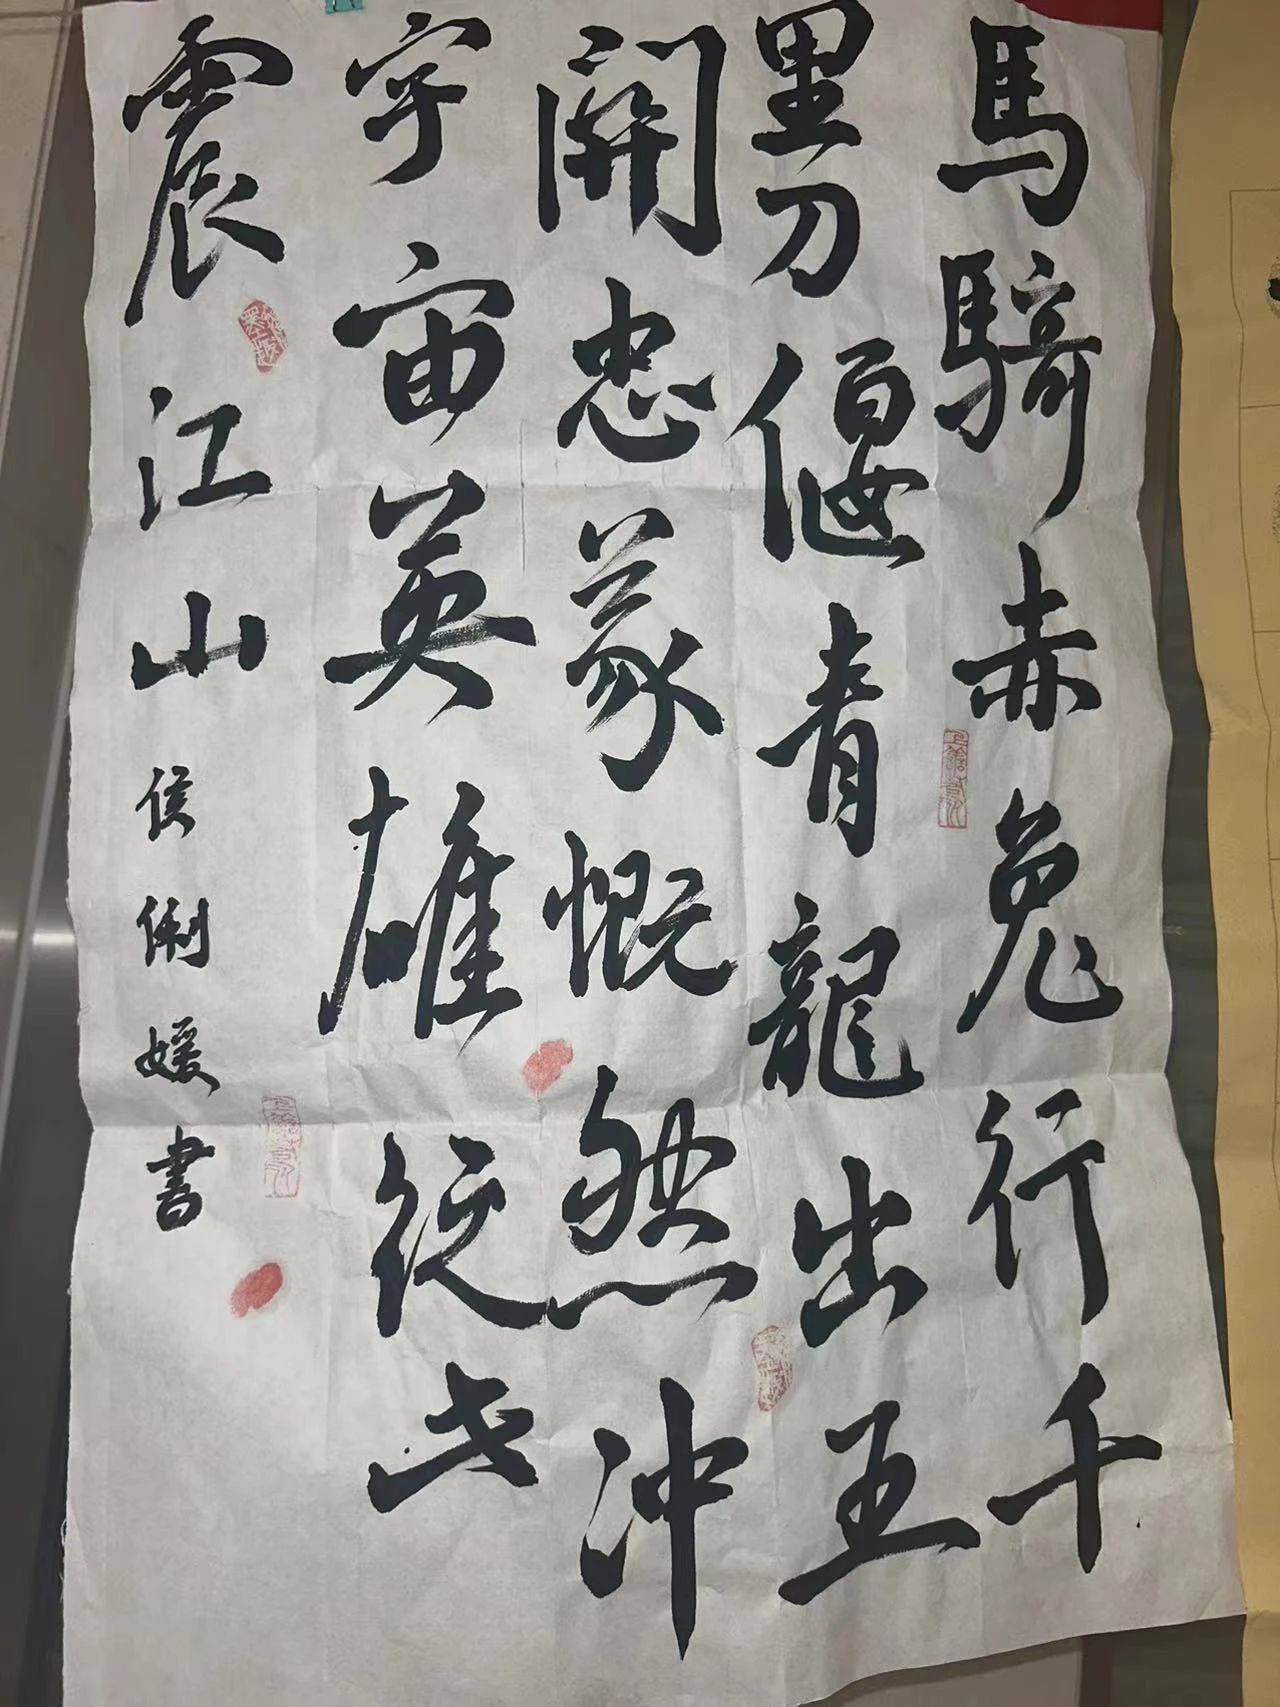 馬騎赤兔行千
里刀偃青龍出五
關忠義慨然冲
宇宙英雄從此
震江山侯俐媛書